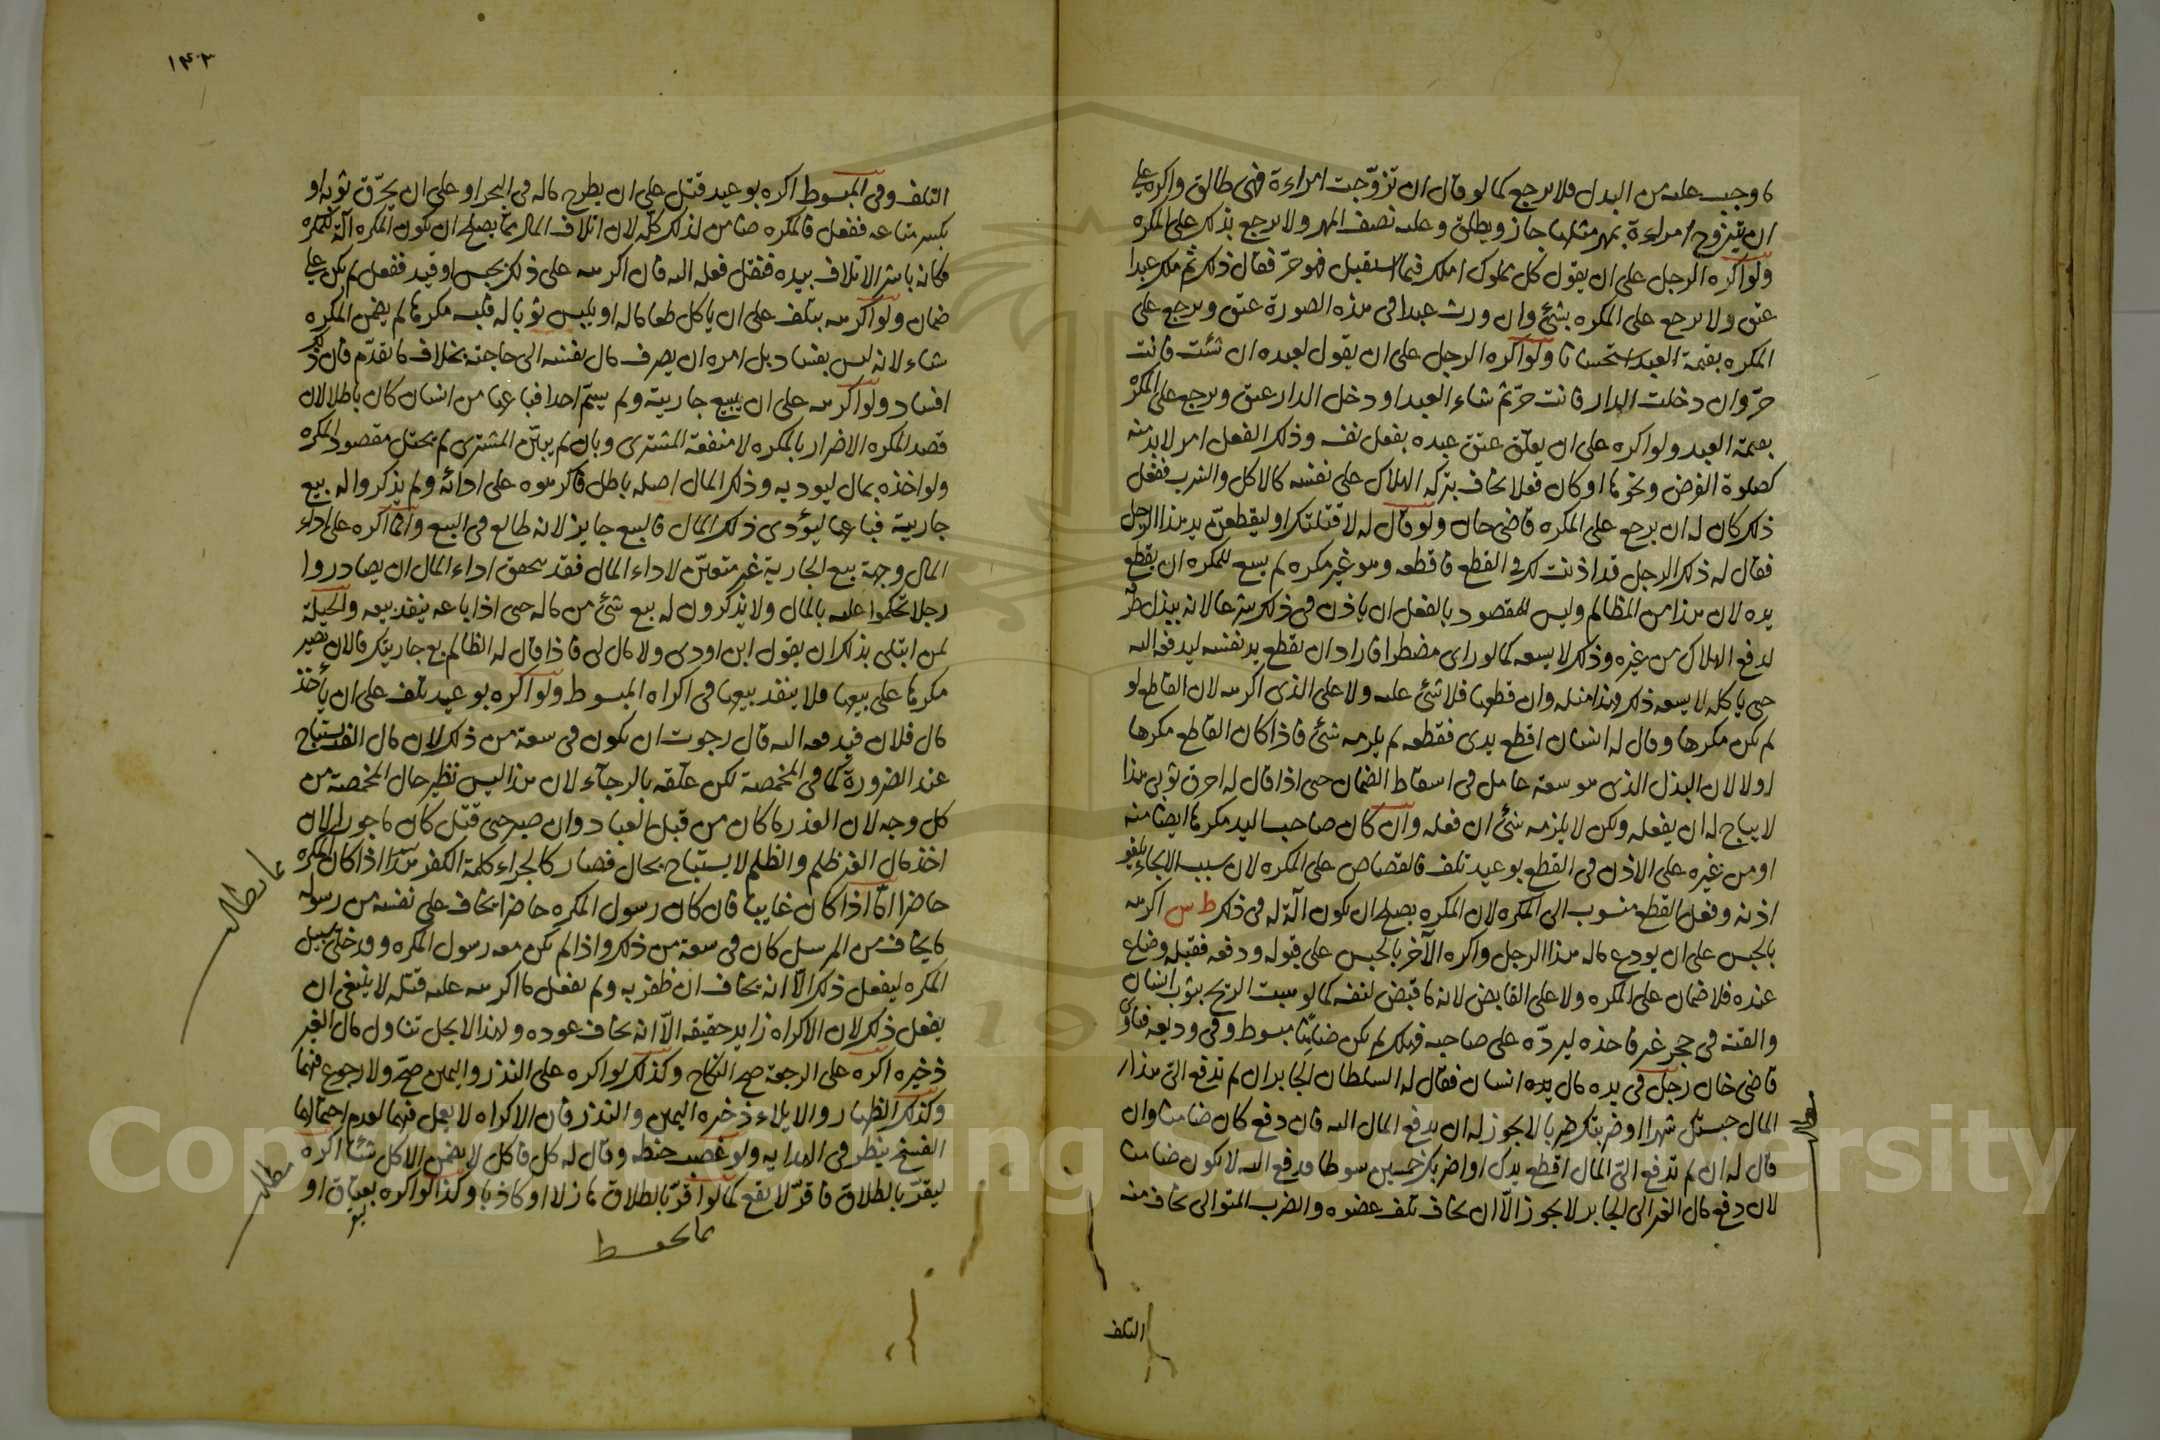 ما وجب عليه من البدل فلا يرجع كما لو قال ان تزوّجت امراءة فهى طالق واكره على
ان يتزوج امراءة بمهر مثلها جاز ويطلق وعليه نصف المهر ولا يرجع بذلك على المكره
ولو اكره الرجل على ان يقول كل مملوك املكه فيما استقبل فهو حرّ فقال ذلك ثم ملك عبدا
عتق ولا يرجع على المكره بشئ وان ورث عبدا فى هذه الصورة عتق ويرجع على
المكره بقيمة العبد استحسانا ولو اكره الرجل على ان يقول لعبده ان شئت فانت
حرّ وان دخلت الدار فانت حرّ ثم شاء العبد او دخل الدار عتق ويرجع على المكره
بقيمة العبد ولو اكره على ان يعلّق عتق عبده بفعل نفسه وذلك الفعل امر لا بد منه
كصلوة الفرض ونحوها او كان فعلا يخاف بتركه الهلاك على نفسه كالاكل والشرب ففعل
ذلك كان له ان يرجع على المكره قاضى خان ولو قال له لاقتلنك او ليقطعنّ يد هذا الرجل
فقال له ذلك الرجل قد اذنت لك فى القطع فاقطعه وهو غير مكره لم يسع للمكره ان يقطع
يده لان هذا من المظالم وليس المقصود بالفعل ان ياذن فى ذلك شرعا لانه يبذل طرفه
لدفع الهلاك من غيره وذلك لا يسعه كما لو راى مضطرا فاراد ان يقطع يد نفسه ليدفعه اليه
حتى ياكله لا يسعه ذلك فهذا مثله وان قطعها فلا شئ عليه ولا على الذى اكرهه لان القاطع لو
لم يكن مكرها وقال له انسان اقطع يدى فقطعه لم يلزمه شئ فاذا كان القاطع مكرها
اولا لان البذل الذى هو سعة عامل فى اسقاط الضمان حتى اذا قال له احرق ثوبى هذا
لا يباح له ان يفعله ولكن لا يلزمه شئ ان فعله وان كان صاحب اليد مكرها ايضا منه
او من غيره على الاذن فى القطع بوعيد تلف فالقصاص على المكره لان بسبب الالجاء يلغو
اذنه وفعل القطع منسوب الى المكره لان المكره يصلح ان يكون آلة له فى ذلك ط س اكرهه
بالحبس على ان يودع ماله هذا الرجل واكره الآخر بالحبس على قبوله ودفعه فقبله وضاع
عنده فلا ضمان على المكره ولا على القابض لانه ما قبض لنفسه كما لو هبت الريح بثوب انسان
والقته فى حجر غيره فاخذه ليردّه على صاحبه فهلك لم يكن ضامنا مبسوط وفى وديعة فتاوى
قاضى خان رجل فى يده مال انسان فقال له السلطان الجابر ان لم تدفع الىّ هذا
المال حبستك شهرا او ضربتك ضربا لا يجوز له ان يدفع المال اليه فان دفع كان ضامنا وان
قال له ان لم تدفع الىّ المال اقطع يدك او اضربك خمسين سوطا فدفع اليه لا يكون ضامنا
لان دفع مال الغير الى الجابر لا يجوز الّا ان يخاف تلف عضوه والضرب المتوالى يخاف منه
التلف
١٤٣
التلف وفى المبسوط اكره بوعيد قتل على ان يطرح ماله فى البحر او على ان يحرّق ثوبه او
يكسر متاعه ففعل فالمكره ضامن لذلك كلّه لان اتلاف المال مما يصلح ان يكون المكره آلة للمكره
فكانه باشر الاتلاف بيده فنقل فعله اليه فان اكرهه على ذلك بحبس او قيد ففعل لم يكن على
ضمان ولو اكرهه بتلف على ان ياكل طعاما له او يلبس ثوبا له فلبسه مكرها لم يضمن المكره
شاء لانه ليس بفساد بل امره ان يصرف مال نفسه الى حاجته بخلاف ما تقدّم فان ذلك
افساد ولو اكرهه على ان يبيع جاريته ولم يسمّ احدا فباعها من انسان كان باطلا لان
قصد المكره الاضرار بالمكره لا منفعة المشترى وبان لم يبيّن المشترى لم يختل مقصود المكره
ولو اخذه بمال ليوديه وذلك المال اصله باطل فاكرهوه على ادائه ولم يذكروا له بيع
جارية فباعها ليؤدى ذلك المال فالبيع جايز لانه طايع فى البيع وانما اكره على اداء
المال وجهة بيع الجارية غير متعيّن لاداء المال فقد يتحقق اداء المال ان يصادروا
رجلا تحكموا عليه بالمال ولا يذكرون له بيع شئ من ماله حتى اذا باعه ينفذ بيعه والحيلة
لمن ابتلى بذلك ان يقول اين اودى ولا مال لى فاذا قال له الظالم بع جاريتك فالان يصير
مكرها على بيعها فلا ينفذ بيعها فى اكراه المبسوط ولو اكره بوعيد تلف على ان يأخذ
مال فلان فيدفعه اليه قال رجوت ان يكون فى سعة من ذلك لان مال الغير يستباح
عند الضرورة كما فى المخمصة لكن علّقه بالرجاء لان هذا ليس نظير حال المخمصة من
كل وجه لان العذر ما كان من قبل العباد وان صبر حتى قتل كان ماجورا لان
اخذ مال الغير ظلم والظلم لا يستباح بحال فصار كاجراء كلمة الكفر هذا اذا كان المكره
حاضرا امّا اذا كان غايبا فان كان رسول المكره حاضرا يخاف على نفسه من رسوله
ما يخاف من المرسل كان فى سعة من ذلك واذا لم يكن معه رسول المكره وقد خلى سبيل
المكره ليفعل ذلك الّا انه يخاف ان ظفر به ولم يفعل ما اكرهه عليه قتله لا ينبغى ان
يفعل ذلك لان الاكراه زايد حقيقة الّا انه يخاف عوده ولهذا لا يحل تناول مال الغير
ذخيره اكره على الرجعة صح النكاح وكذلك لو اكره على النذر واليمين صحّ ولا رجوع فيهما
وكذلك الظهار والايلاء ذخيره اليمين والنذر فان الاكراه لا يعمل فيهما لعدم احتمالهما
الفسخ ينظر فى الهدايه ولو غصب حنطه وقال له كل فاكل لا يضمن الاكل شئا اكره
ليقرّ بالطلاق فاقرّ لا يقع كما لو اقرّ بالطلاق هازلا او كاذبا وكذا لو اكره بعتاق او
مما يحفظ
مما يطالب
مطلب